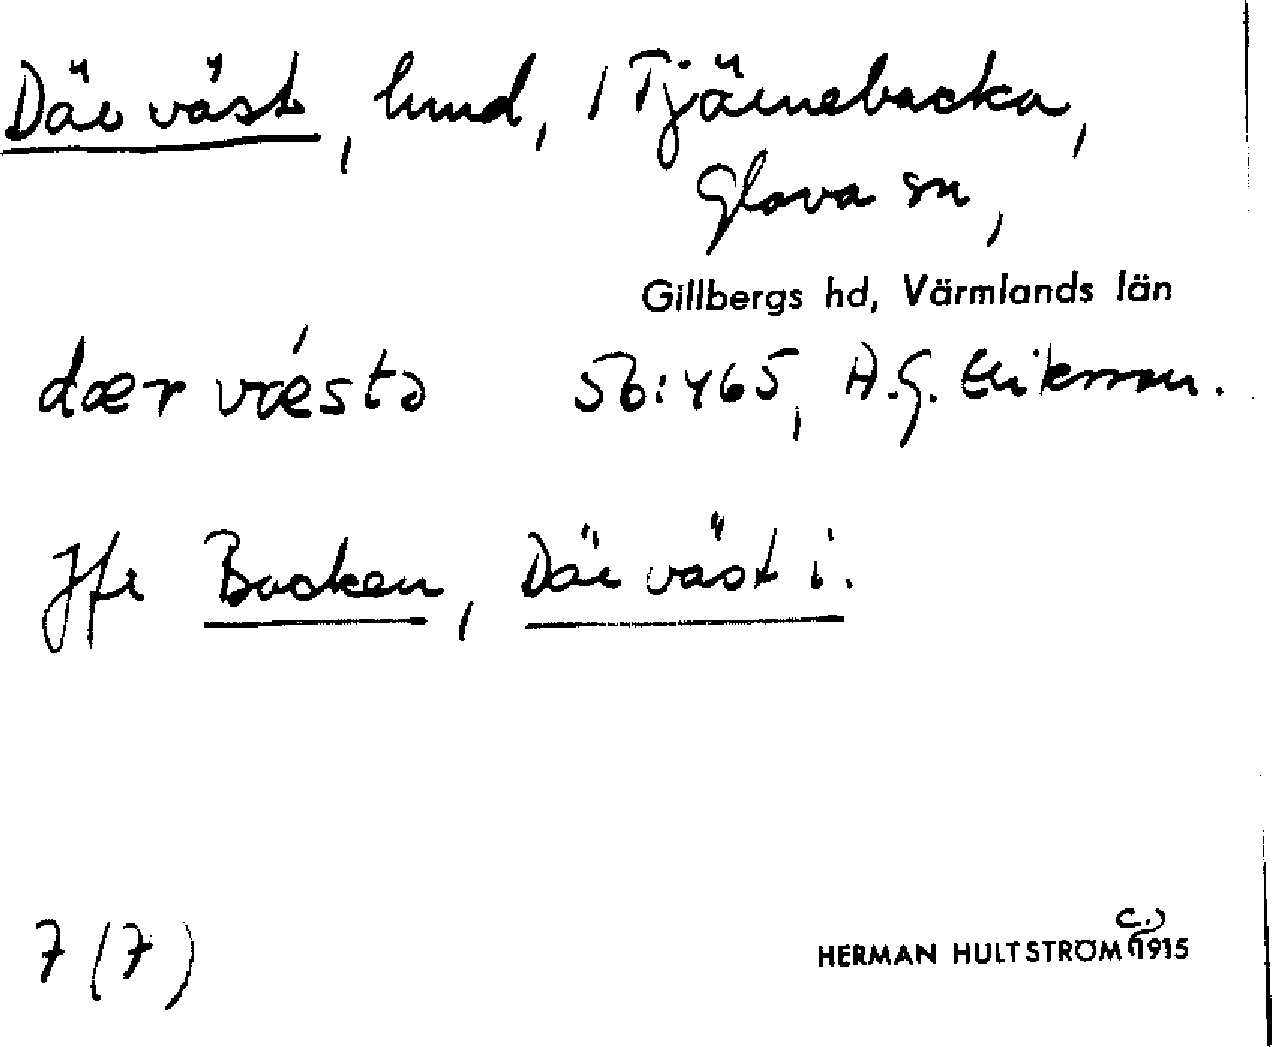 Där väst, lund, i Tjärnebacka,
Glava sn,
Gillbergs hd, Värmlands län
dær vǽstə 56:465, A.G. Erikman.
Jfr Backen, Där väst i.
7 (7)
c.)
HERMAN HULTSTRÖM (1915